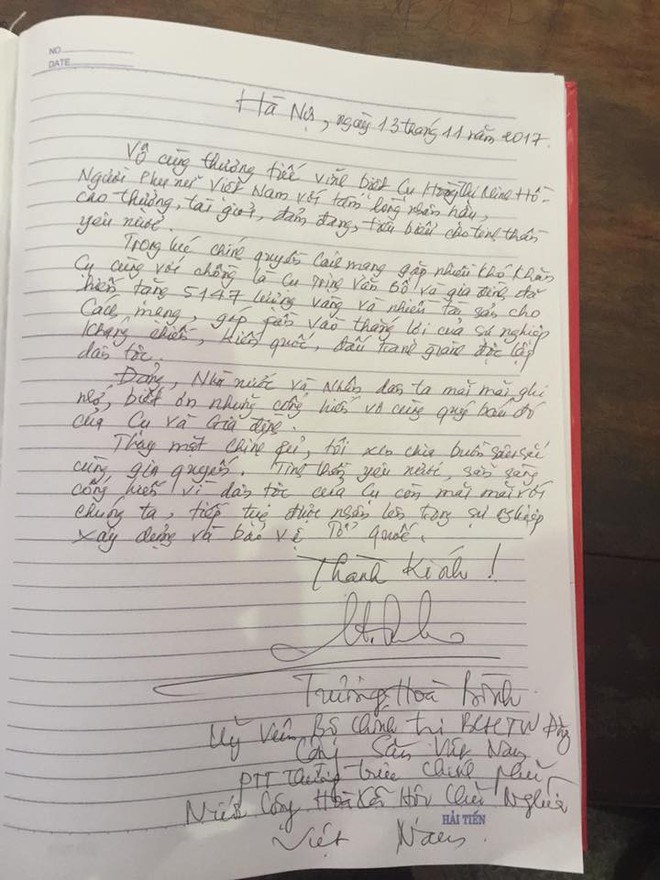 NO.
DATE
Hà Nội, ngày 13 tháng 11 năm 2017.
Vô cùng thương tiếc vĩnh biệt Cụ Hoàng Thị Minh Hồ -
Người Phụ nữ Việt Nam với tấm lòng nhân hậu,
cao thượng, tài giỏi, đảm đang, tiêu biểu cho tinh thần
yêu nước.
Trong lúc chính quyền Cách mạng gặp nhiều khó khăn
Cụ cùng với chồng là Cụ Trịnh Văn Bô và gia đình đã
hiến tặng 5147 lượng vàng và nhiều tài sản cho
Cách mạng, góp phần vào thắng lợi của sự nghiệp
kháng chiến, kiến quốc, đấu tranh giành độc lập
dân tộc.
Đảng, Nhà nước và Nhân dân ta mãi mãi ghi
nhớ, biết ơn những cống hiến vô cùng quý báu đó
của Cụ và Gia đình.
Thay mặt Chính phủ, tôi xin chia buồn sâu sắc
cùng gia quyến. Tinh thần yêu nước, sẵn sàng
cống hiến vì dân tộc của Cụ còn mãi mãi với
chúng ta, tiếp tục được nhân lên trong sự nghiệp
xây dựng và bảo vệ Tổ quốc.
Thành Kính!
Trương Hoà Bình
Uỷ Viên Bộ Chính trị BCHTW Đảng
Cộng Sản Việt Nam
PTT Thường trực Chính phủ
Nước Cộng Hoà Xã Hội Chủ Nghĩa
HẢI TIẾN
Việt Nam.